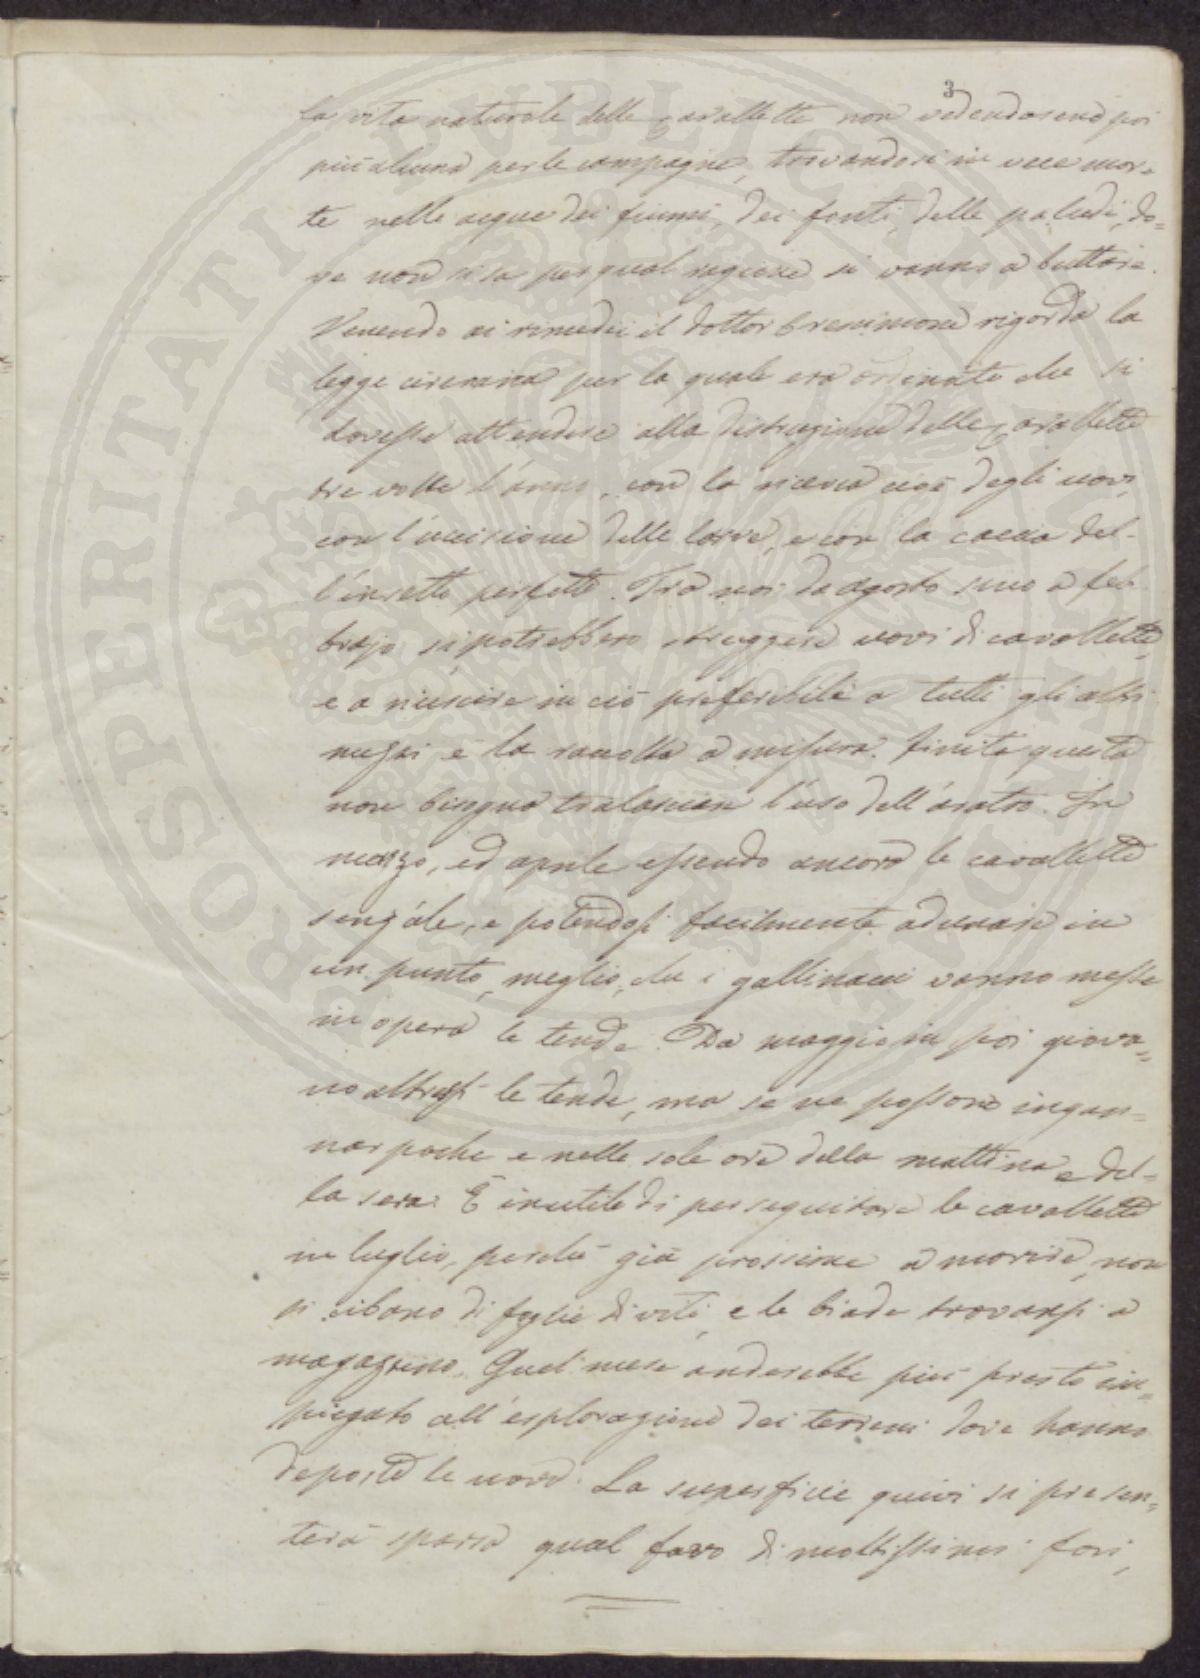 3
la vita naturale delle Cavallette non vedendosene poi
più alcuna per le campagne, trovandosi in vece mor=
te nelle acque dei fiumi, dei fonti, delle paludi, do=
ve non si sa per qual ragione si vanno a buttare.
Venendo ai rimedii il dottor rigorda la
legge cirenaica per la quale era ordinato che si
dovesse attendere alla distruzione delle Cavallette
tre volte l'anno, con la ricerca cioè degli uovi,
con l'uccisione delle larve, e con la caccia del-
l'insetto perfetto. Fra noi da agosto sino a feb
brajo si potrebbero struggere uovi di cavallette,
e a riuscire in ciò preferibile a tutti gli altri
mezzi è la raccolta a misura. Finita questa
non bisogna tralasciare l'uso dell'aratro. In
marzo, ed aprile essendo ancora le cavallette
senz'ale, e potendosi facilmente adunare in
un punto, meglio, che i gallinacci vanno messe
in opera le tende. Da maggio in poi giova=
no altresì le tende, ma se ne possono ingan=
nar poche e nelle sole ore della mattina e del=
la sera. È inutile di perseguitare le cavallette
in luglio, perchè già prossime a morire, non
si cibano di foglie di viti, e le biade trovansi a
magazzino. Quel mese anderebbe più presto im=
piegato all'esplorazione dei terreni dove hanno
deposte le uova. La superficie quivi si presen=
terà sparsa qual favo di moltissimi fori,